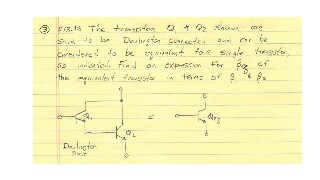 ③ The transistors Q₁ & Q₂ shown are
said to be Darlington connected and can be
considered to be equivalent to a single transistor,
as indicated. Find an expression for βeq of
the equivalent transistor in terms of β₁ & β₂
Q₁
Q₂
=
Qeq
Darlington
Pair